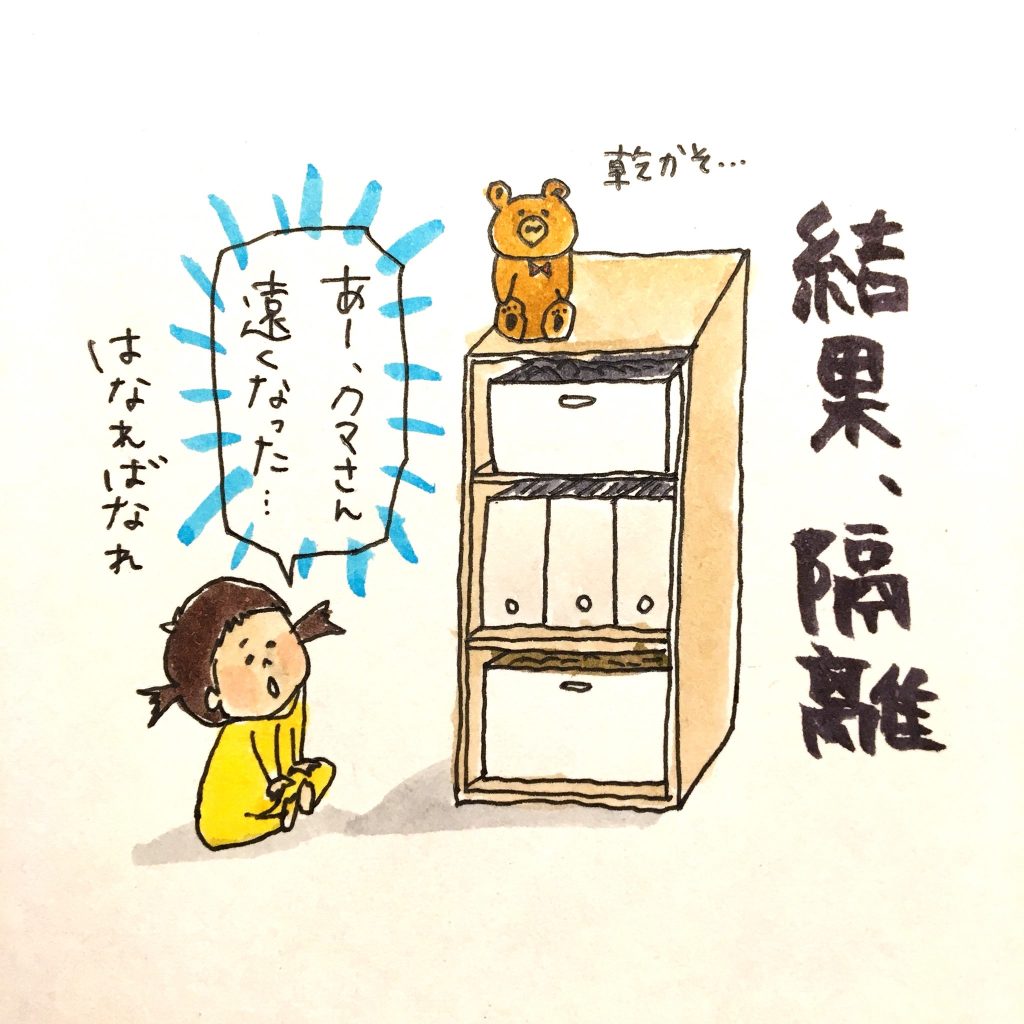 結果、隔離
乾かそ…
あー、クマさん
遠くなった…
はなればなれ